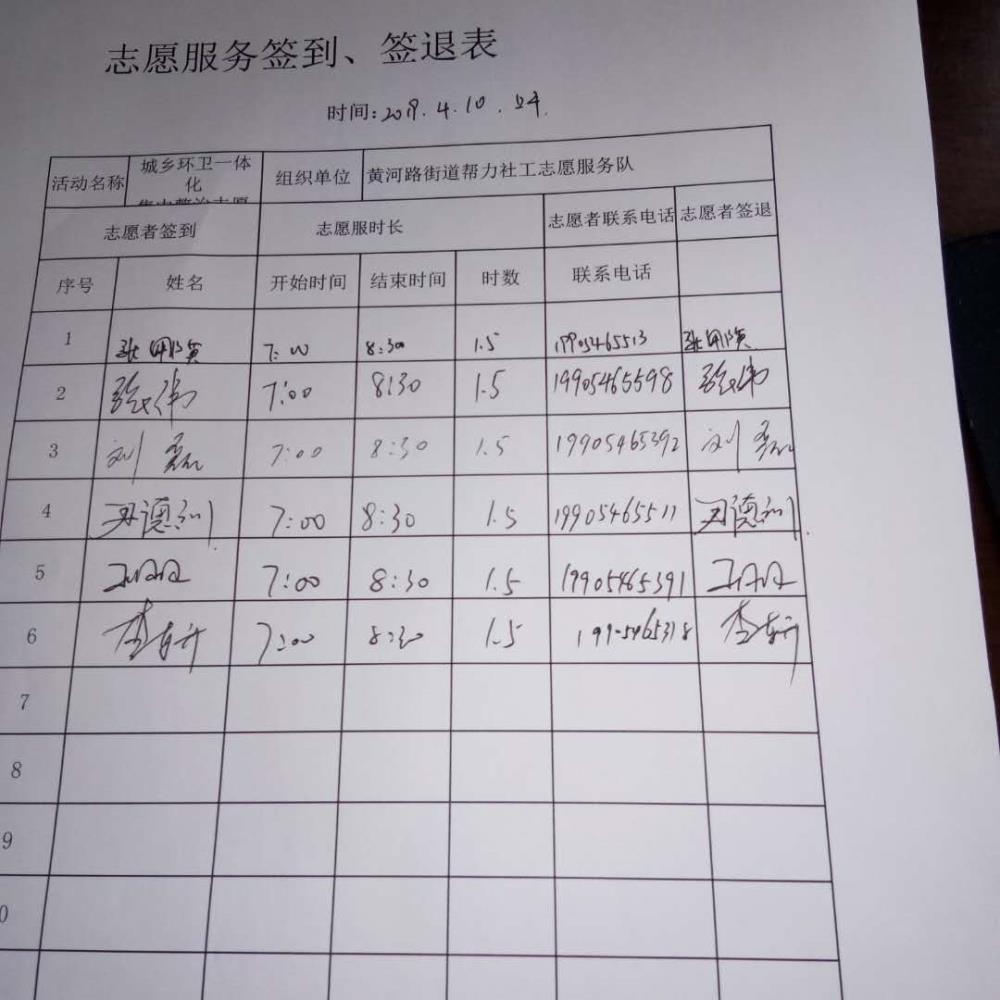 志愿服务签到、签退表
时间:2019.4.10.
活动名称 城乡环卫一体化 组织单位 黄河路街道帮力社工志愿服务队
志愿者签到 志愿服时长 志愿者联系电话 志愿者签退
序号 姓名 开始时间 结束时间 时数 联系电话
1 张 7:00 8:30 1.5 19905465513 张
2 张伟 7:00 8:30 1.5 19905465598 张伟
3 刘磊 7:00 8:30 1.5 19905465392 刘磊
4 德 7:00 8:30 1.5 19905465511 德
5 7:00 8:30 1.5 19905465391
6 李 7:00 8:30 1.5 19905465318 李
7
8
9
0